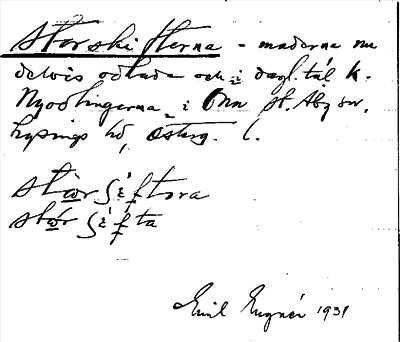 Storskifterna - maderna nu
delvis odlade och i dagl. tal k.
Nyodlingerna i Ona St. Åby sn.
Lysings hd, Österg. l.
stωr ʃiftora
stωr ʃifta
Emil Eugnér 1931